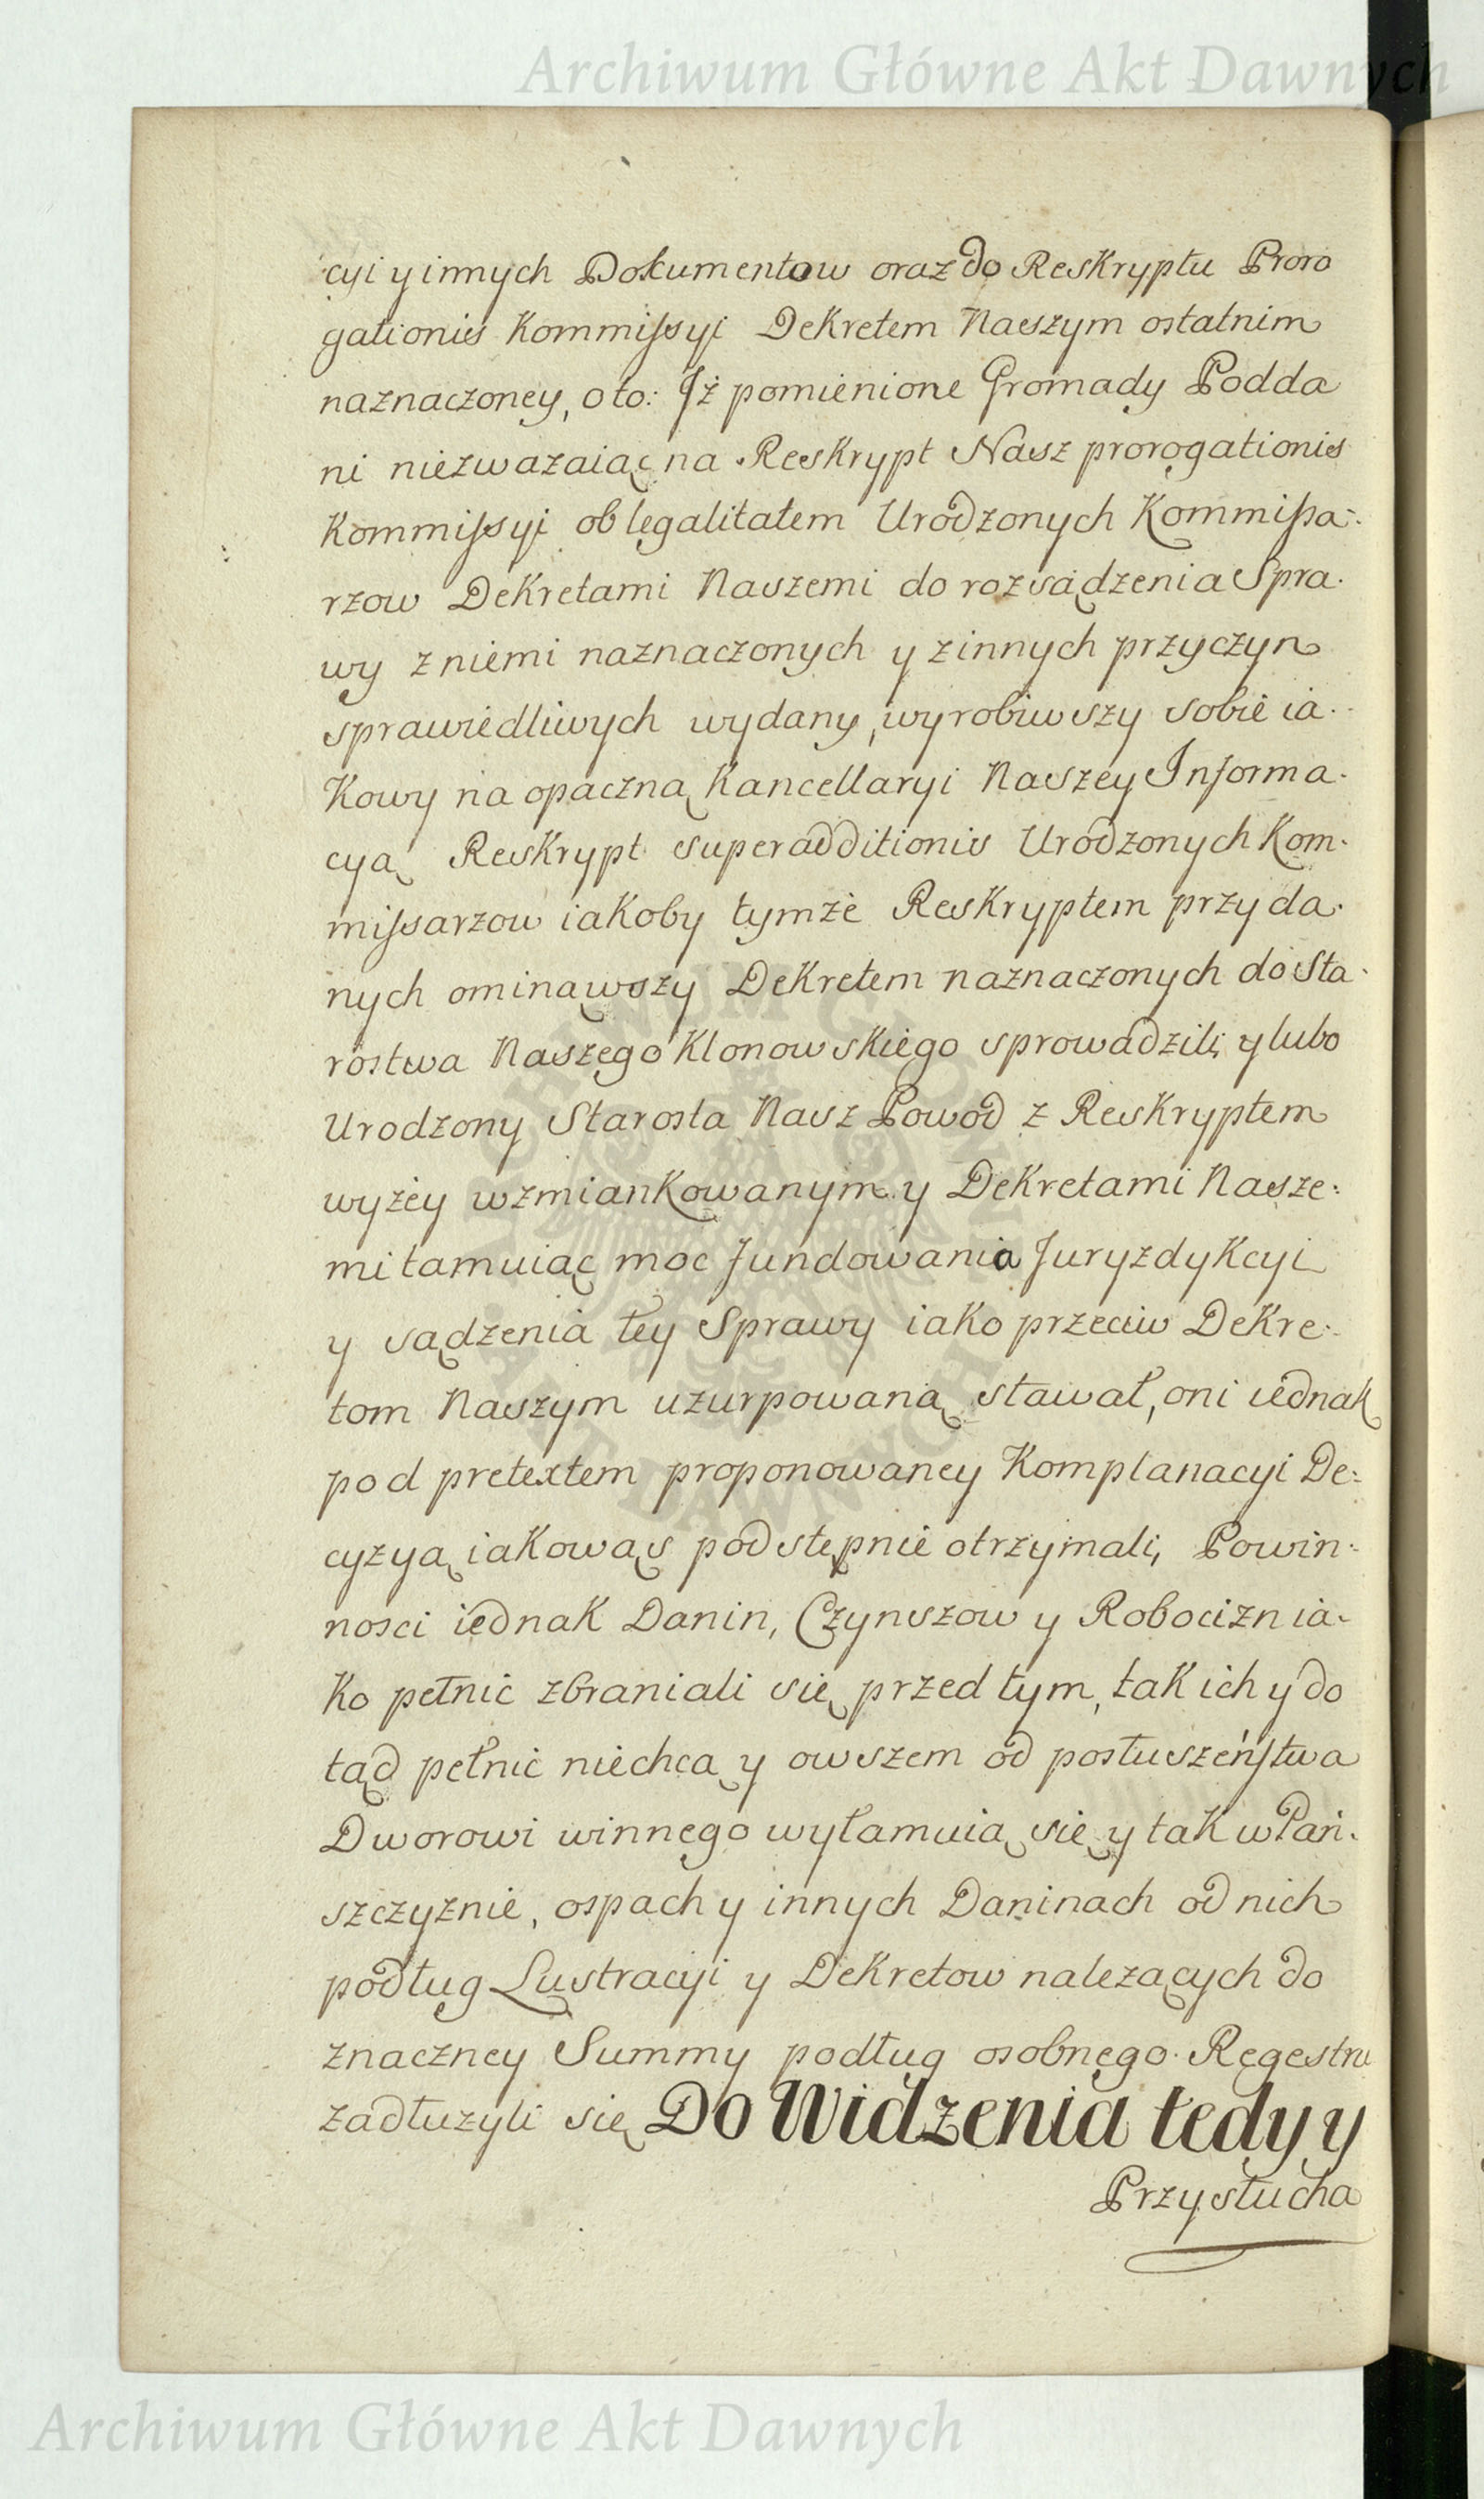 Archiwum Główne Akt Dawnych
cyi y innych Dokumentow oraz do Reskryptu Proro
gationis Kommissyi Dekretem Naszym ostatnim
naznaczoney, o to: Iż pomienione Gromady Podda
ni niezwazaiąc na Reskrypt Nasz prorogationis
Kommissyi ob legalitatem Urodzonych Kommissa-
rzow Dekretami Naszemi do rozsądzenia Spra-
wy z niemi naznaczonych y z innych przyczyn
sprawiedliwych wydany, wyrobiwszy sobie ia-
Kowy na opaczną Kancellaryi Naszey Informa-
cyą Reskrypt superadditionis Urodzonych Kom-
missarzow iakoby tymże Reskryptem przyda-
nych ominąwszy Dekretem naznaczonych do Sta-
rostwa Naszego Klonowskiego sprowadzili, y lubo
Urodzony Starosta Nasz Powod z Reskryptem
wyżey wzmiankowanym y Dekretami Nasze:
mi tamuiąc moc fundowania Juryzdykcyi
y sądzenia tey Sprawy iako przeciw Dekre:
tom Naszym uzurpowaną stawał, oni iednak
pod pretextem proponowaney Komplanacyi De:
cyzyą iakowąs podstępnie otrzymali, Powin-
nosci iednak Danin, Czynszow y Robocizn ia-
ko pełnic zbraniali się przed tym, tak ich y do
tąd pełnic niechcą y owszem od posłuszeństwa
Dworowi winnego wyłamuią się y tak w Pań-
szczyznie, ospach y innych Daninach od nich
podług Lustracyi y Dekretow nalezących do
znaczney Summy podług osobnego Regestru
zadłużyli się Do Widzenia tedy y
Przysłucha
ARCHIWUM GŁÓWNE AKT DAWNYCH
Archiwum Główne Akt Dawnych